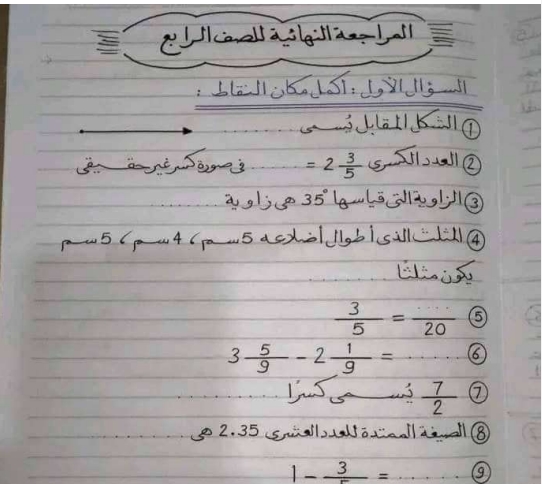 المراجعة النهائية للصف الرابع
السؤال الأول : أكمل مكان النقاط :
① الشكل المقابل يُسمى ..........
② العدد الكسرى 2 3/5 = .......... فى صورة كسر غير حقيقى
③ الزاوية التى قياسها 35° هى زاوية ..........
④ المثلث الذى أطوال أضلاعه 5 سم ، 4 سم ، 5 سم
يكون مثلثًا ..........
⑤ 3/5 = ..../20
⑥ 3 5/9 - 2 1/9 = ........
⑦ 7/2 يُسمى كسرًا ..........
⑧ الصيغة الممتدة للعدد العشرى 2.35 هى ..........
⑨ 1 - 3/5 = ........